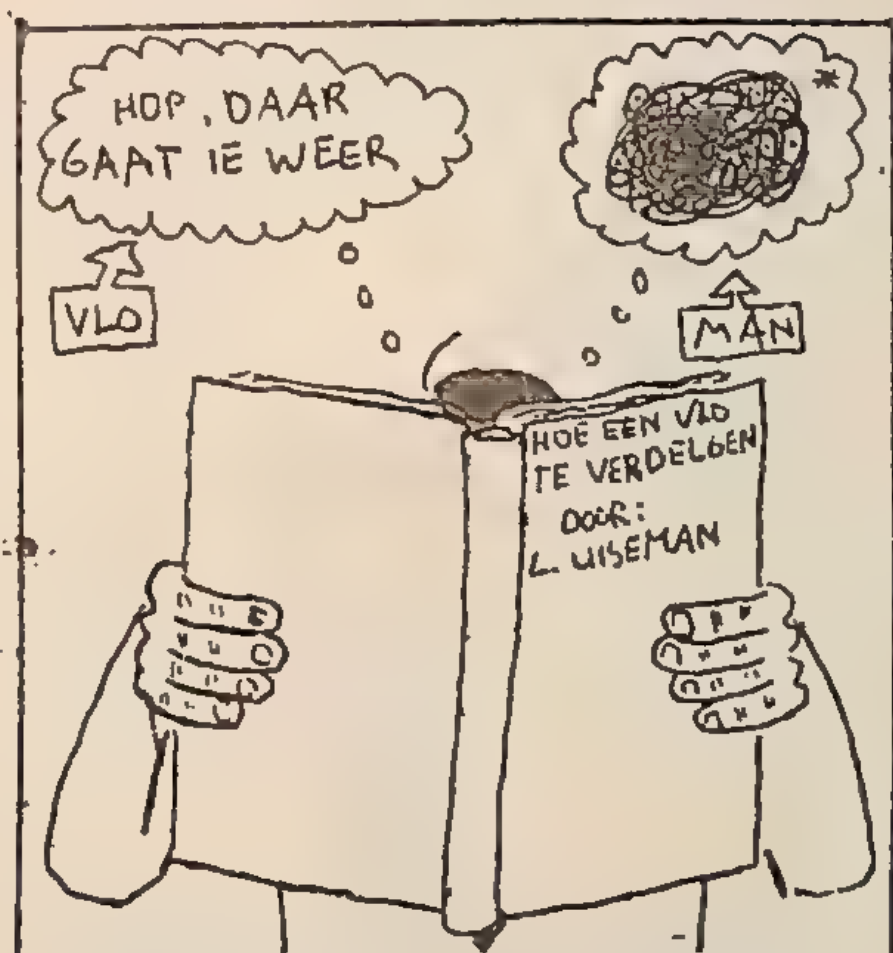 HOP, DAAR
GAAT IE WEER
*
VLO
MAN
HOE EEN VLO
TE VERDELGEN
DOOR:
L. UISEMAN